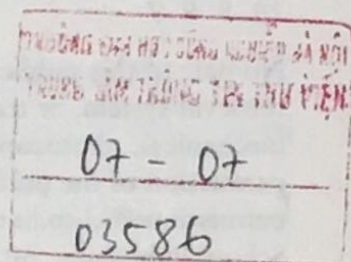 TRƯỜNG ĐẠI HỌC CÔNG NGHIỆP HÀ NỘI
TRUNG TÂM THÔNG TIN THƯ VIỆN
07 - 07
03586